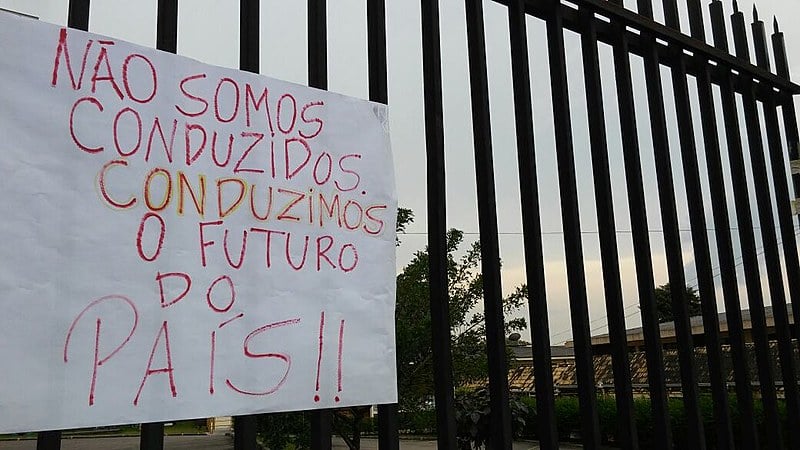 NÃO SOMOS
CONDUZIDOS.
CONDUZIMOS
O FUTURO
DO
PAÍS!!